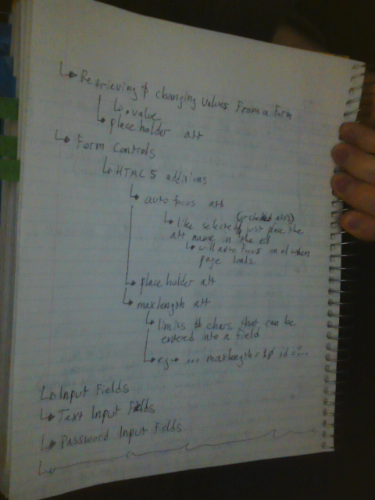 ↳ Retrieving & changing values From a Form
↳ .value
↳ placeholder att
↳ Form Controls
↳ HTML 5 additions
↳ autofocus att
(↳ checked also)
↳ like selected just place the
att name in the el
↳ will auto focus on el when
page loads.
↳ placeholder att
↳ maxlength att
↳ limits # chars that can be
entered into a field
↳ eg → ... maxlength = 10 id = "...
↳ Input Fields
↳ Text Input Fields
↳ Password Input Fields
↳